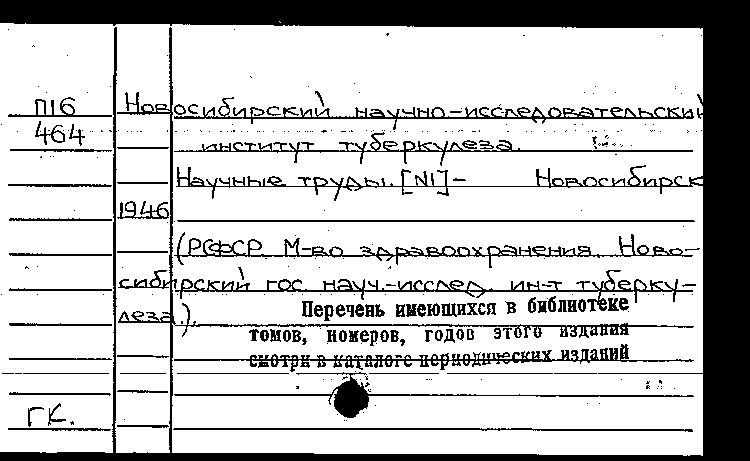 П16 Новосибирский научно-исследовательский
464 институт туберкулеза.
Научные труды. [N1]- Новосибирск
1946
(РСФСР. М-во здравоохранения. Ново-
сибирский гос. науч.-исслед. ин-т туберку-
леза.).
Перечень имеющихся в библиотеке
томов, номеров, годов этого издания
смотри в каталоге периодических изданий
ГК.